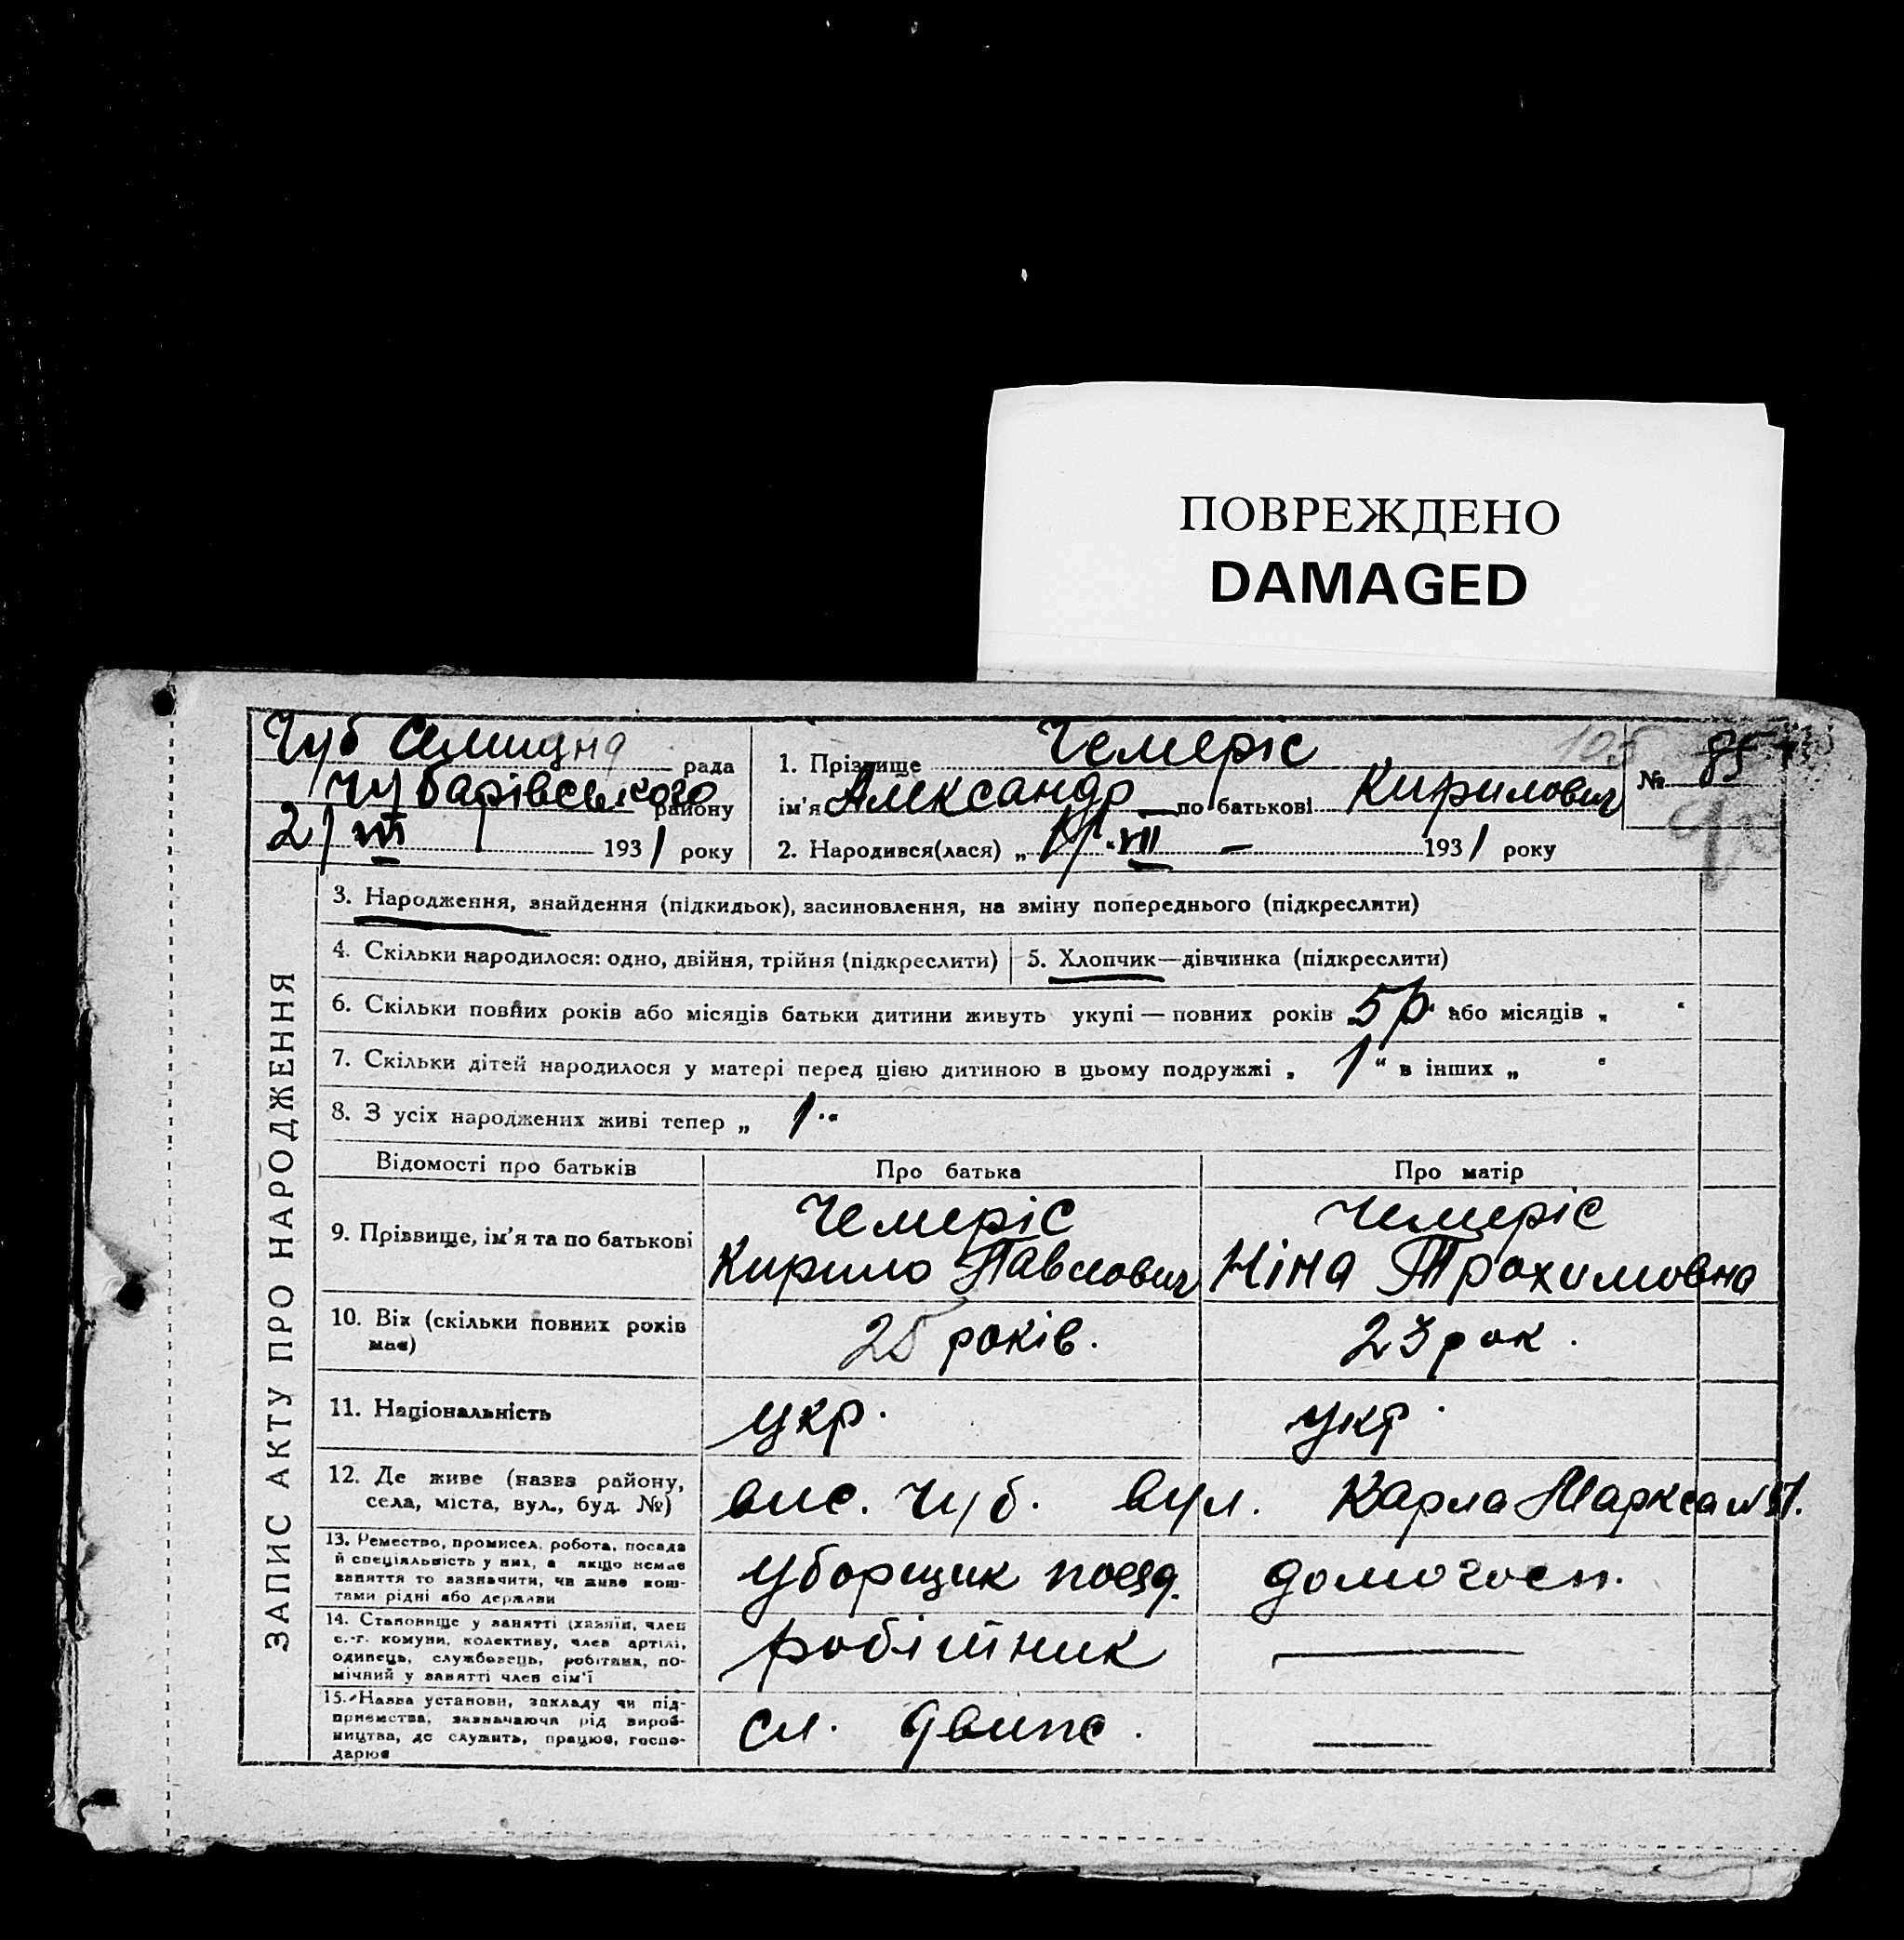 ПОВРЕЖДЕНО
DAMAGED
Чуб Селищна рада
Чубарівського району
2/VII 1931 року
1. Прізвище Чемеріс
ім'я Александр по батькові Кирилович
2. Народився(лася) „ "VII - 1931 року
105
№ 85
ЗАПИС АКТУ ПРО НАРОДЖЕННЯ
3. Народження, знайдення (підкидьок), засиновлення, на зміну попереднього (підкреслити)
4. Скільки народилося: одно, двійня, трійня (підкреслити)
5. Хлопчик—дівчинка (підкреслити)
6. Скільки повних років або місяців батьки дитини живуть укупі — повних років 5 р. або місяців „ "
7. Скільки дітей народилося у матері перед цією дитиною в цьому подружжі „ 1 " в інших „ "
8. З усіх народжених живі тепер „ 1 "
Відомості про батьків Про батька Про матір
9. Прізвище, ім'я та по батькові
Чемеріс
Кирило Павлович
Чемеріс
Ніна Трохимовна
10. Вік (скільки повних років
має)
25 років.
23 рок.
11. Національність
укр.
укр.
12. Де живе (назва району,
села, міста, вул., буд. №)
вис. Чуб. вул. Карла Маркса
13. Ремество, промисел, робота, посада
й спеціяльність у них, а якщо немає
заняття то зазначити, чи живе кош-
тами рідні або держави
уборщик поезд.
домогосп.
14. Становище у занятті (хазяїн, член
с.-г. комуни, колективу, член артілі,
одинець, службовець, робітник, по-
мічний у занятті член сім'ї
робітник
15. Назва установи, закладу чи під-
приємства, зазначаючи рід вироб-
ництва, де служить, працює, госпо-
дарює
сл.